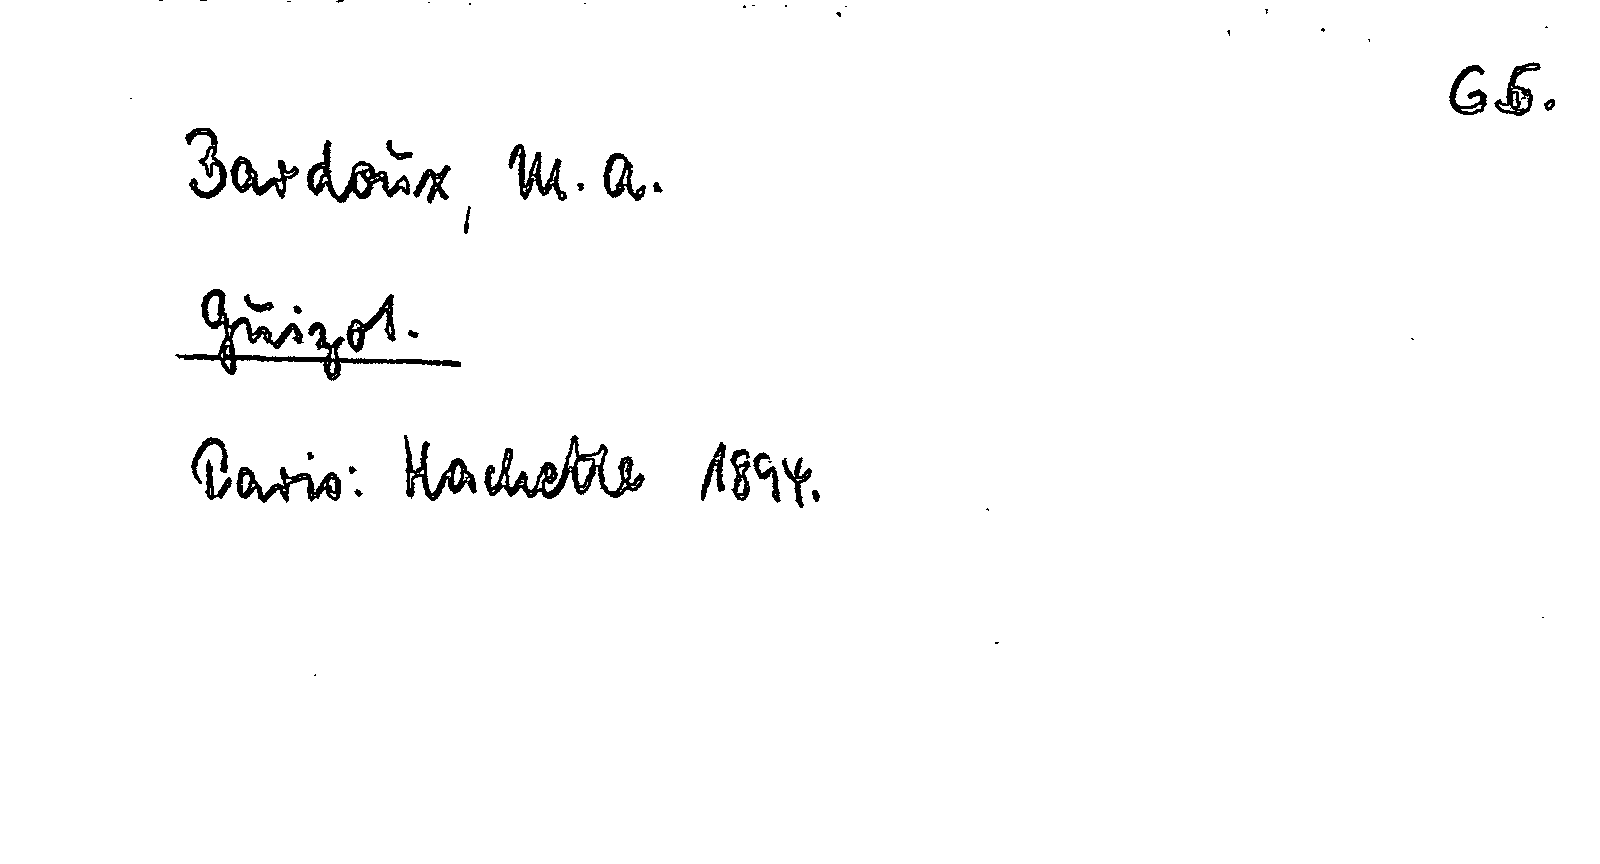 G5.
Bardoux, M. A.
Guizot.
Paris: Hachette 1894.